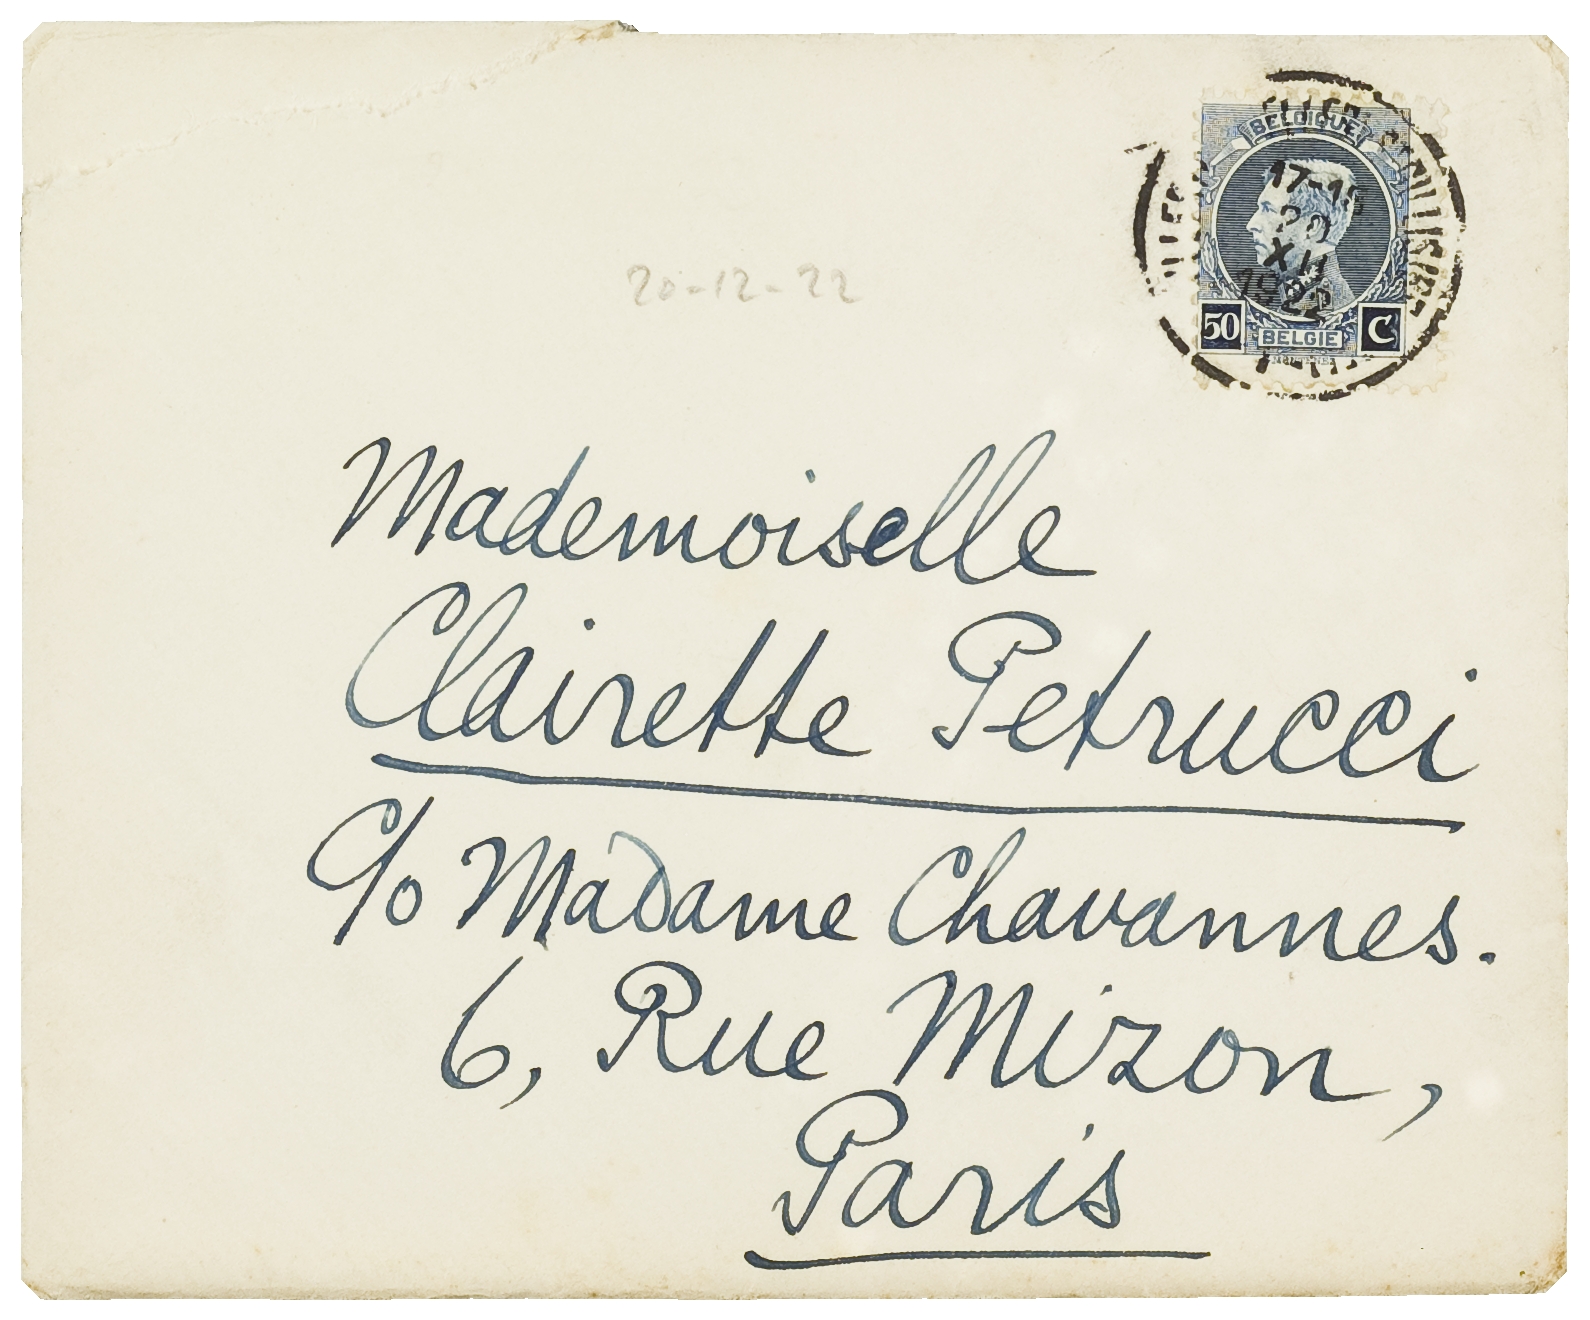 BELGIQUE
17-18
20
XII
1922
50 BELGIE C
20-12-22
Mademoiselle
Clairette Petrucci
c/o Madame Chavannes.
6, Rue Mizon,
Paris